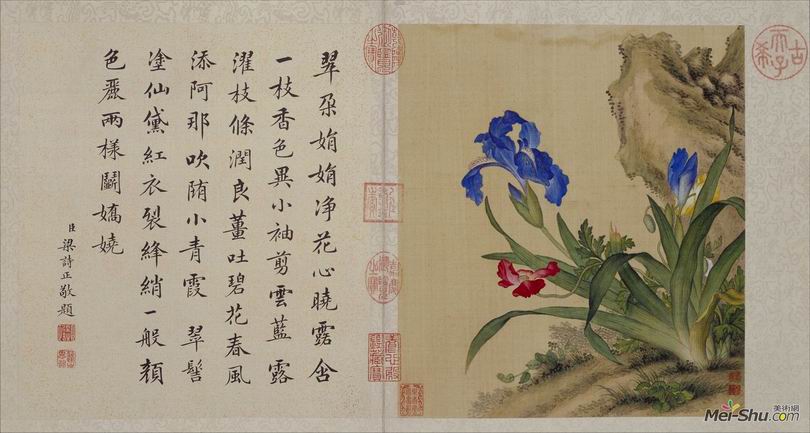 翠朵娟娟净花心曉露含
一枝香色異小袖剪雲藍露
濯枝條潤良薑吐碧花春風
添阿那吹陏小青霞 翠髻
塗仙黛紅衣裂絳綃一般顏
色麗兩樣鬭嬌嬈
臣梁詩正敬題
古希天子
美術網
Mei-Shu.com